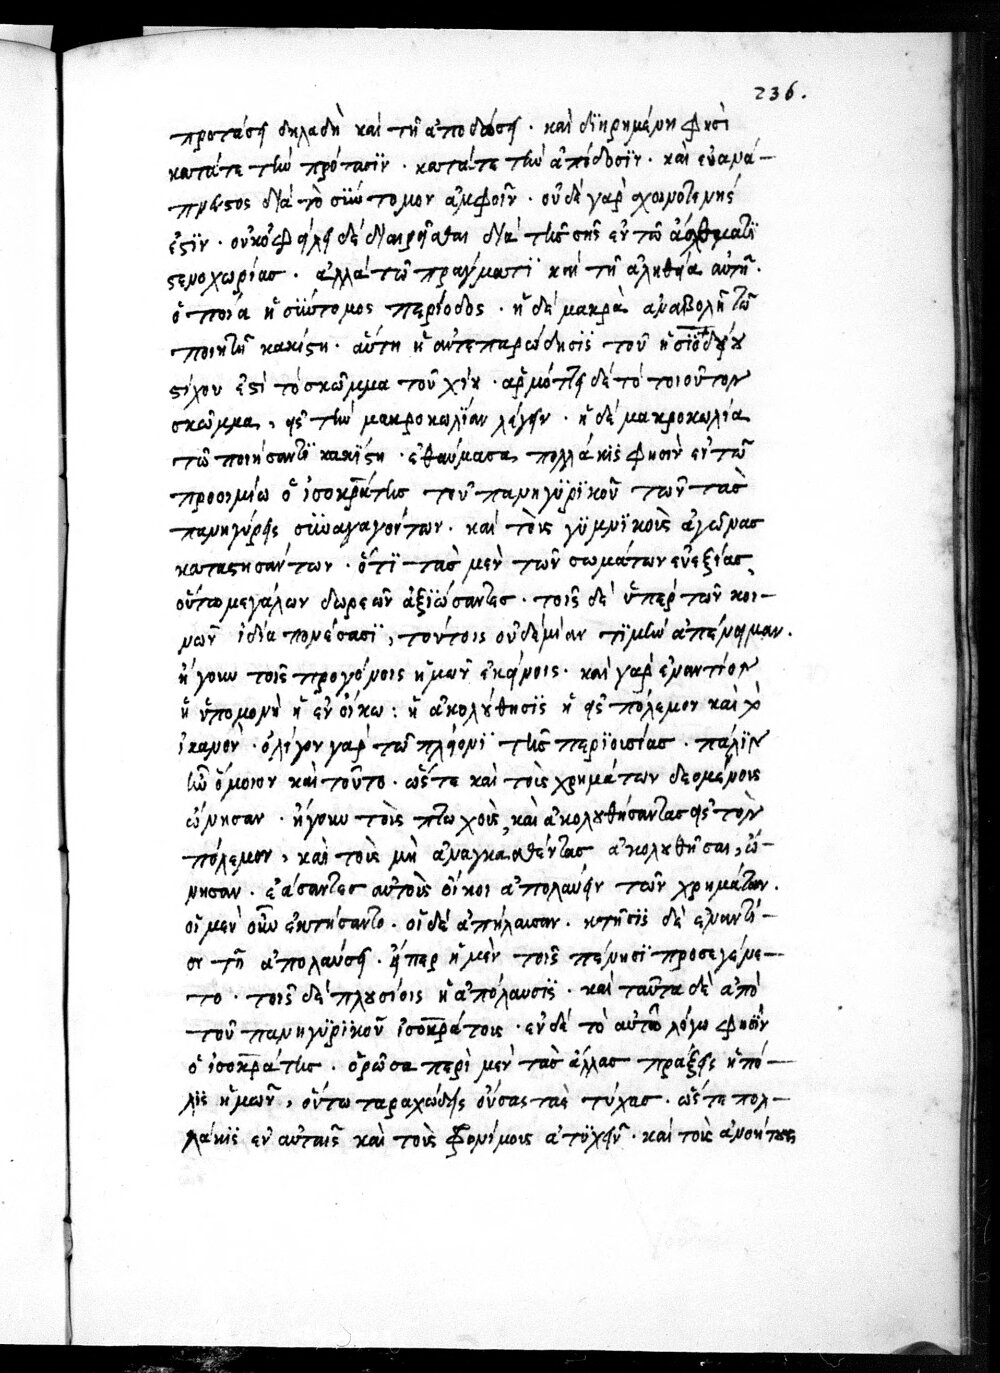 236.
προτάσει δηλαδὴ καὶ τῆ ἀποδόσει · καὶ διηρημένη φησὶ
κατά τε τὴν πρότασιν · κατά τε τὴν ἀπόδοσιν · καὶ ἐναμά-
διὰ τὸ σύντομον ἀμφοῖν · οὐδὲ γὰρ σχοινοτενής
ἐστιν · οὐκ ὀφείλει δὲ διαιρεῖσθαι διὰ τῆς ἐν τῶ ἄσθματι
στενοχωρίας · ἀλλὰ τῶ πράγματι καὶ τῆ ἀληθεία αὐτῆ ·
ὁποία ἡ σύντομος περίοδος · ἡ δὲ μακρὰ ἀναβολὴ τῶ
ποιητῆ κακίστη · αὕτη ἡ ἀντεπαρώδησις τοῦ ἡσιοδείου
στίχου ἐστὶ τὸ σκῶμμα τοῦ χίου · ἁρμόττει δὲ τὸ τοιοῦτον
σκῶμμα, εἰς τὴν μακροκωλίαν λέγειν · ἡ δὲ μακροκωλία
τῶ ποιήσαντι κακίστη · ἐθαύμασα πολλάκις φησὶν ἐν τῶ
προοιμίω ὁ ἰσοκράτης τοῦ πανηγυρικοῦ τῶν τὰς
πανηγύρεις συναγαγόντων · καὶ τοὺς γυμνικοὺς ἀγῶνας
καταστησάντων · ὅτι τὰς μὲν τῶν σωμάτων εὐεξίας
οὕτω μεγάλων δωρεῶν ἀξιώσαντες · τοῖς δὲ ὑπὲρ τῶν κοι-
νῶν ἰδία πονέσασι, τούτοις οὐδεμίαν τιμὴν ἀπένειμαν.
ἤγουν τοῖς προγόνοις ἡμῶν ἐκείνοις · καὶ γὰρ ἐναντίον
ἡ ὑπομονὴ ἡ ἐν οἴκω : ἡ ἀκολούθησις ἡ εἰς πόλεμον καὶ τὸ
ἱκανὸν · ὀλίγον γὰρ τῶ πλείονι τῆς περιουσίας · πάλιν
τῶ ὅμοιον καὶ τοῦτο · ὥστε καὶ τοὺς χρημάτων δεομένους
ὤνησαν · ἤγουν τοὺς πτωχοὺς, καὶ ἀκολουθήσαντας εἰς τὸν
πόλεμον, καὶ τοὺς μὴ ἀναγκασθέντας ἀκολουθῆσαι, ὤ-
νησαν · ἐάσαντες αὐτοὺς οἴκοι ἀπολαύειν τῶν χρημάτων.
οἱ μὲν οὖν ἐκτήσαντο · οἱ δὲ ἀπήλαυσαν · κτῆσις δὲ ἐναντί-
ον τῆ ἀπολαύσει · ἥπερ ἡ μὲν τοῖς πένησι προσεγένε-
το · τοῖς δὲ πλουσίοις ἡ ἀπόλαυσις · καὶ ταῦτα δὲ ἀπὸ
τοῦ πανηγυρικοῦ ἰσοκράτους · ἐν δὲ τῶ αὐτῶ λόγω φησὶν
ὁ ἰσοκράτης · ὁρῶσα περὶ μὲν τὰς ἄλλας πράξεις ἡ πό-
λις ἡμῶν, οὕτω ταραχώδεις οὔσας τὰς τύχας · ὥστε πολ-
λάκις ἐν αὐταῖς καὶ τοὺς φρονίμους ἀτυχεῖν · καὶ τοὺς ἀνοήτους